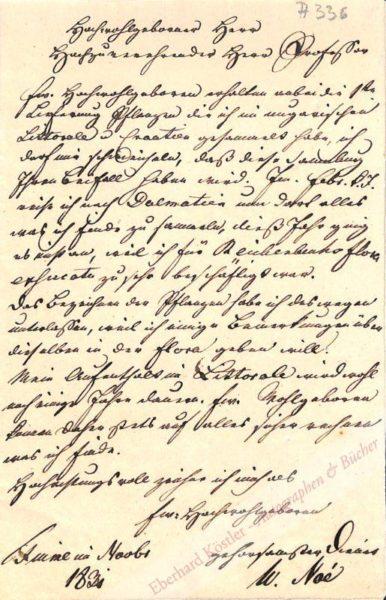 # 336
Hochwohlgeborner Herr
Hochzuverehrender Herr Professor
Ew. Hochwohlgeboren erhalten anbei die 1te
Lieferung Pflanzen die ich im ungarischen
Littorale u Croatien gesammelt habe, ich
darf mir schmeicheln, daß diese Sammlung
Ihren Beifall haben wird. Im Febr. k. J.
reise ich nach Dalmatien um dort alles
was ich finde zu sammeln, dieß Jahr ging
es nicht an, weil ich für Reichenbachs flora
exsiccata zu sehr beschäftigt war.
Das Bezeichnen der Pflanzen habe ich deswegen
unterlassen, weil ich einige Bemerkungen über
dieselben in der Flora geben will.
Mein Aufenthalt im Littorale wird wohl
noch einige Jahre dauern. Ew. Wohlgeboren
können daher stets auf alles sicher rechnen
was ich finde.
Hochachtungsvoll zeichne ich mich als
Ew: Hochwohlgeboren
gehorsamster Diener
Fiume im Novbr
W. Noë
Eberhard Köstler Autographen & Bücher